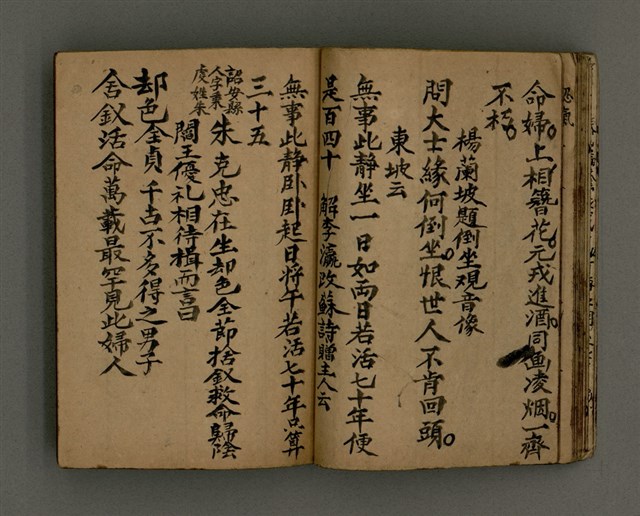 命婦。上相簪花。元戎進酒。同画凌烟。一齊
不朽。
楊蘭坡題倒坐观音像
問大士緣何倒坐。恨世人不肯回頭。
東坡云
無事此静坐一日如両日若活七十年便
是百四十 解李瀛改蘇詩贈主人云
無事此静卧卧起日将午若活七十年只算
三十五
詔安縣人字秉虔姓朱 朱克忠在生却色全節捨釵救命歸陰
閻王優礼相待楫而言曰
却色全貞千古不多得之男子
舍釵活命萬載最罕見此婦人